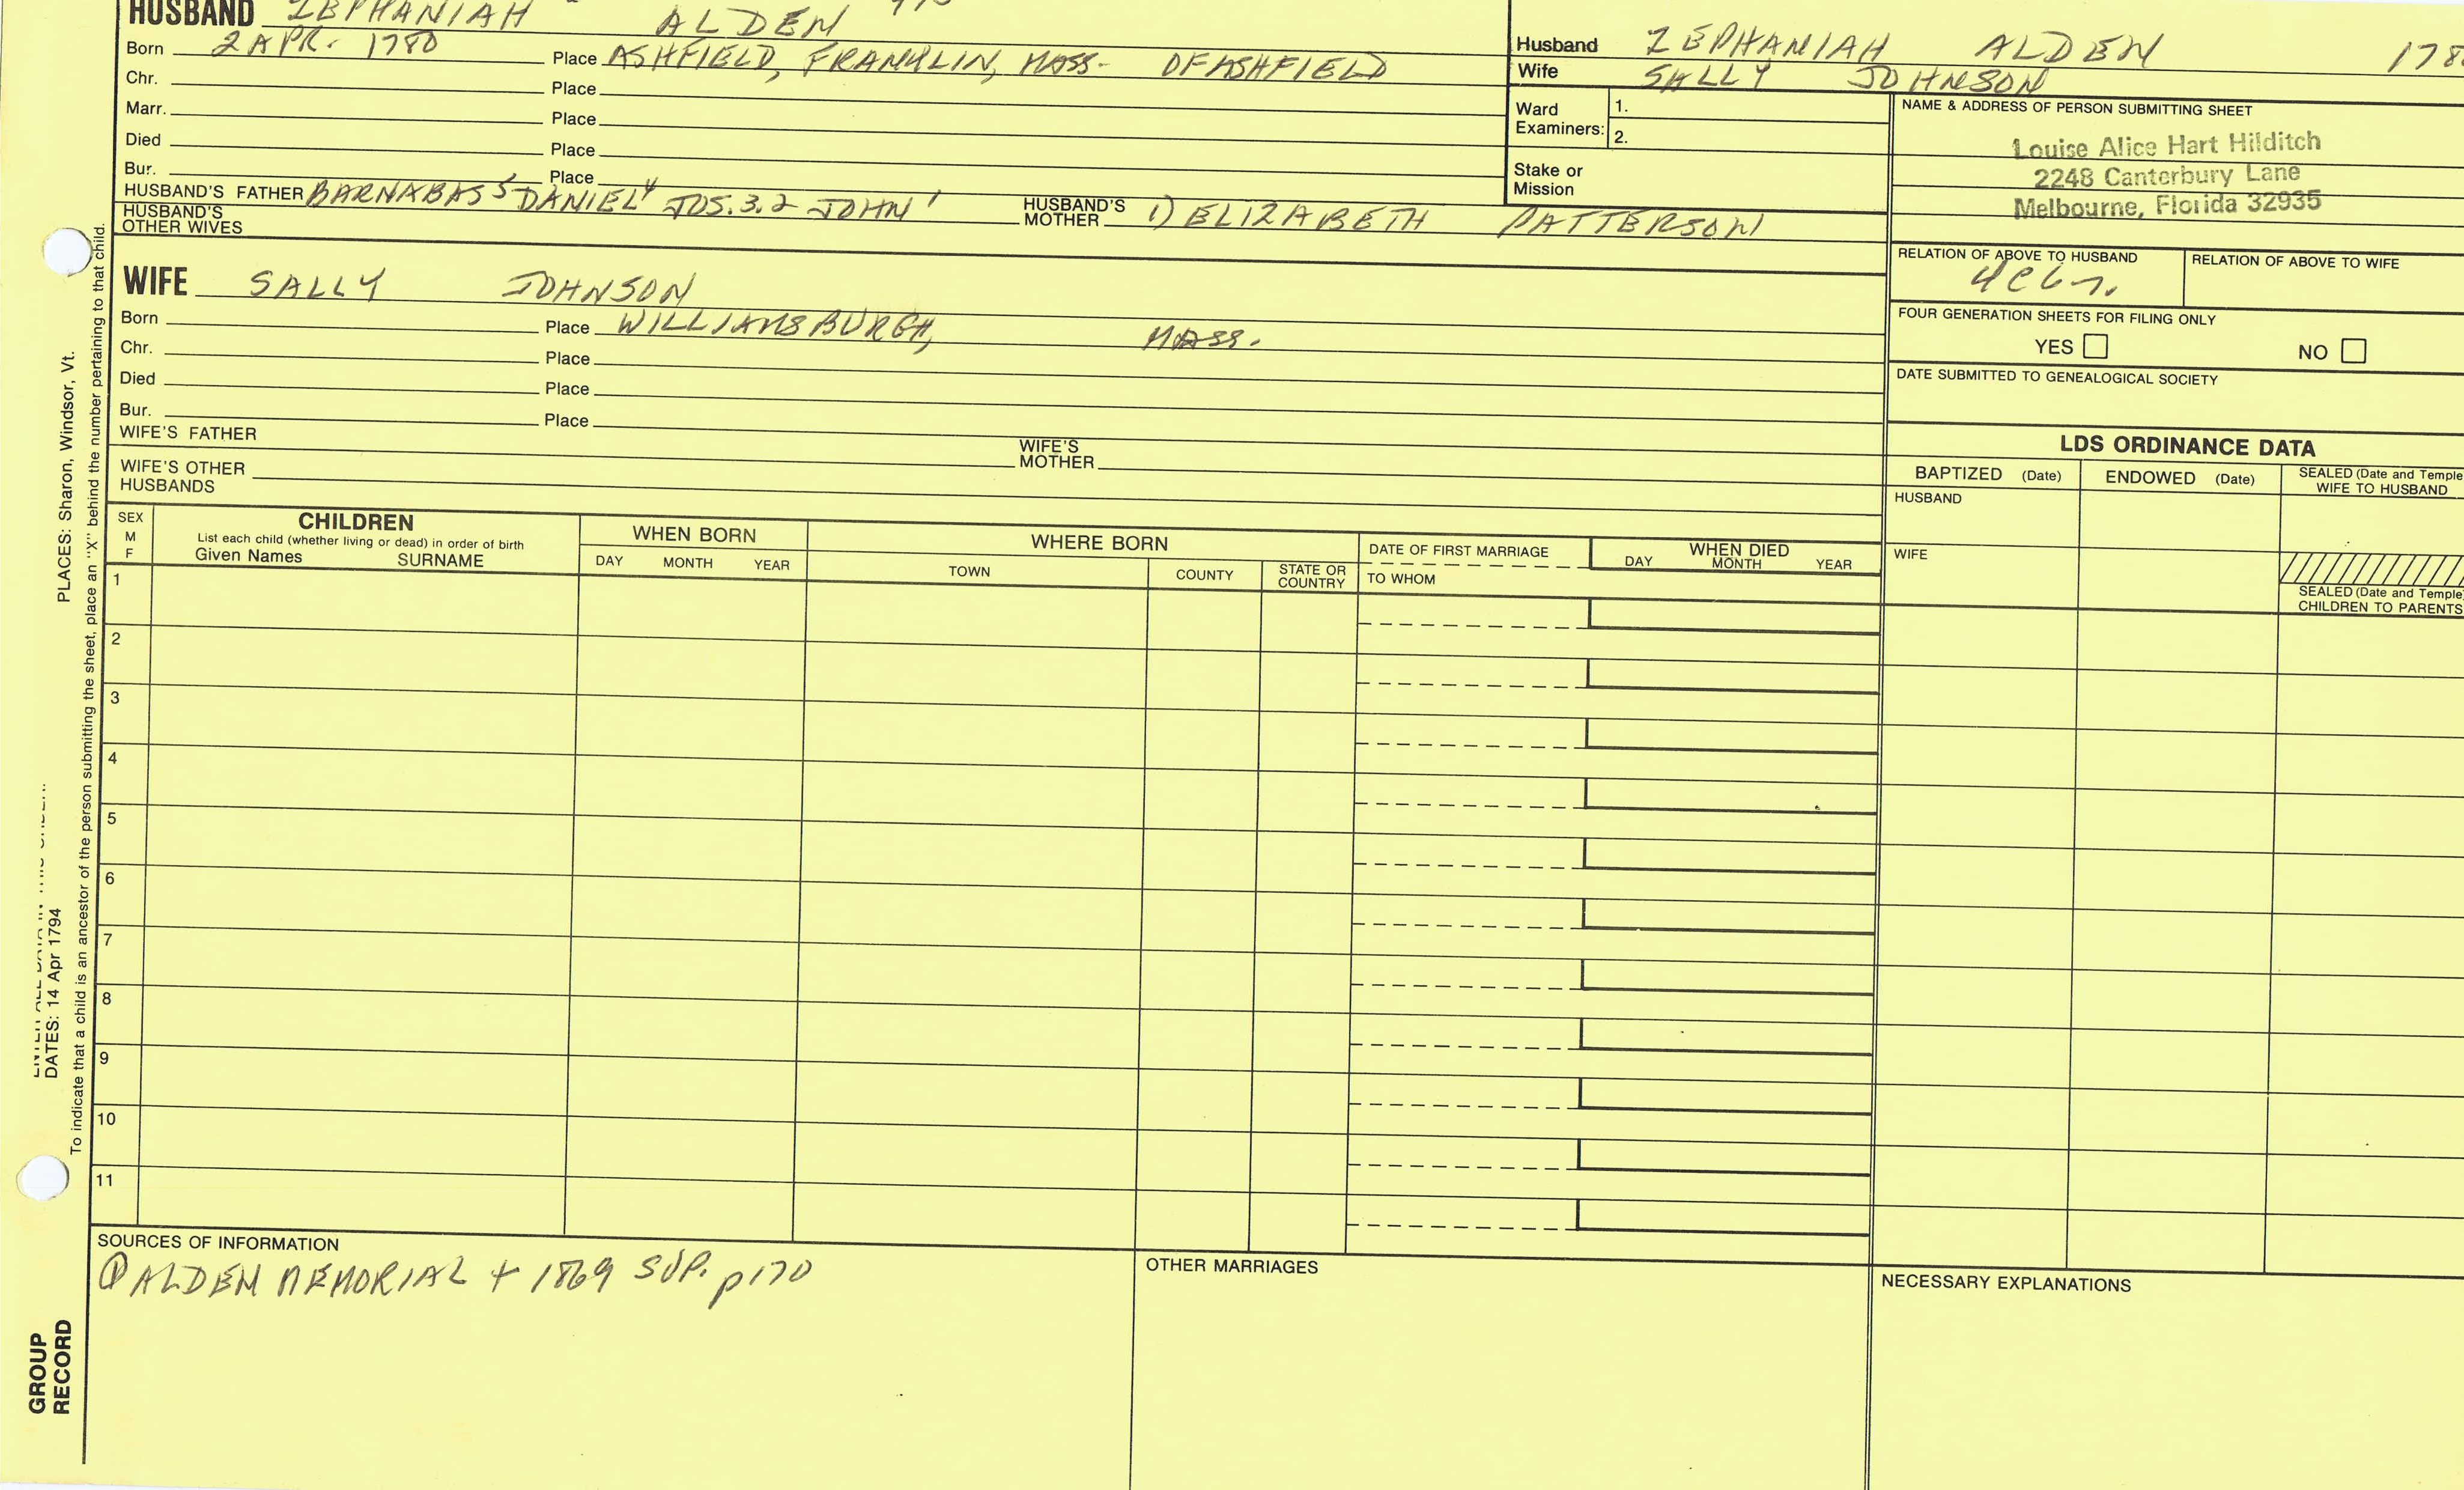 HUSBAND ZEPHANIAH ALDEN
Born 2 APR. 1780 Place ASHFIELD, FRANKLIN, MASS- OF ASHFIELD
Chr. Place
Marr. Place
Died Place
Bur. Place
HUSBAND'S FATHER BARNABAS 5 DANIEL 4 JOS. 3.2 JOHN 1 HUSBAND'S MOTHER 1) ELIZABETH PATTERSON
HUSBAND'S OTHER WIVES
WIFE SALLY JOHNSON
Born Place WILLIAMSBURGH, MASS.
Chr. Place
Died Place
Bur. Place
WIFE'S FATHER WIFE'S MOTHER
WIFE'S OTHER HUSBANDS
Husband ZEPHANIAH ALDEN 178
Wife SALLY JOHNSON
Ward Examiners: 1.
2.
Stake or Mission
NAME & ADDRESS OF PERSON SUBMITTING SHEET
Louise Alice Hart Hilditch
2248 Canterbury Lane
Melbourne, Florida 32935
RELATION OF ABOVE TO HUSBAND RELATION OF ABOVE TO WIFE
FOUR GENERATION SHEETS FOR FILING ONLY
YES NO
DATE SUBMITTED TO GENEALOGICAL SOCIETY
LDS ORDINANCE DATA
BAPTIZED (Date) ENDOWED (Date) SEALED (Date and Temple
WIFE TO HUSBAND
HUSBAND
WIFE
SEALED (Date and Temple
CHILDREN TO PARENTS
SEX
M
F
CHILDREN
List each child (whether living or dead) in order of birth
Given Names SURNAME
WHEN BORN
DAY MONTH YEAR
WHERE BORN
TOWN COUNTY STATE OR COUNTRY
DATE OF FIRST MARRIAGE
TO WHOM
WHEN DIED
DAY MONTH YEAR
1
2
3
4
5
6
7
8
9
10
11
SOURCES OF INFORMATION
① ALDEN MEMORIAL + 1869 SUP. p170
OTHER MARRIAGES
NECESSARY EXPLANATIONS
PLACES: Sharon, Windsor, Vt.
DATES: 14 Apr 1794
To indicate that a child is an ancestor of the person submitting the sheet, place an "X" behind the number pertaining to that child.
GROUP
RECORD